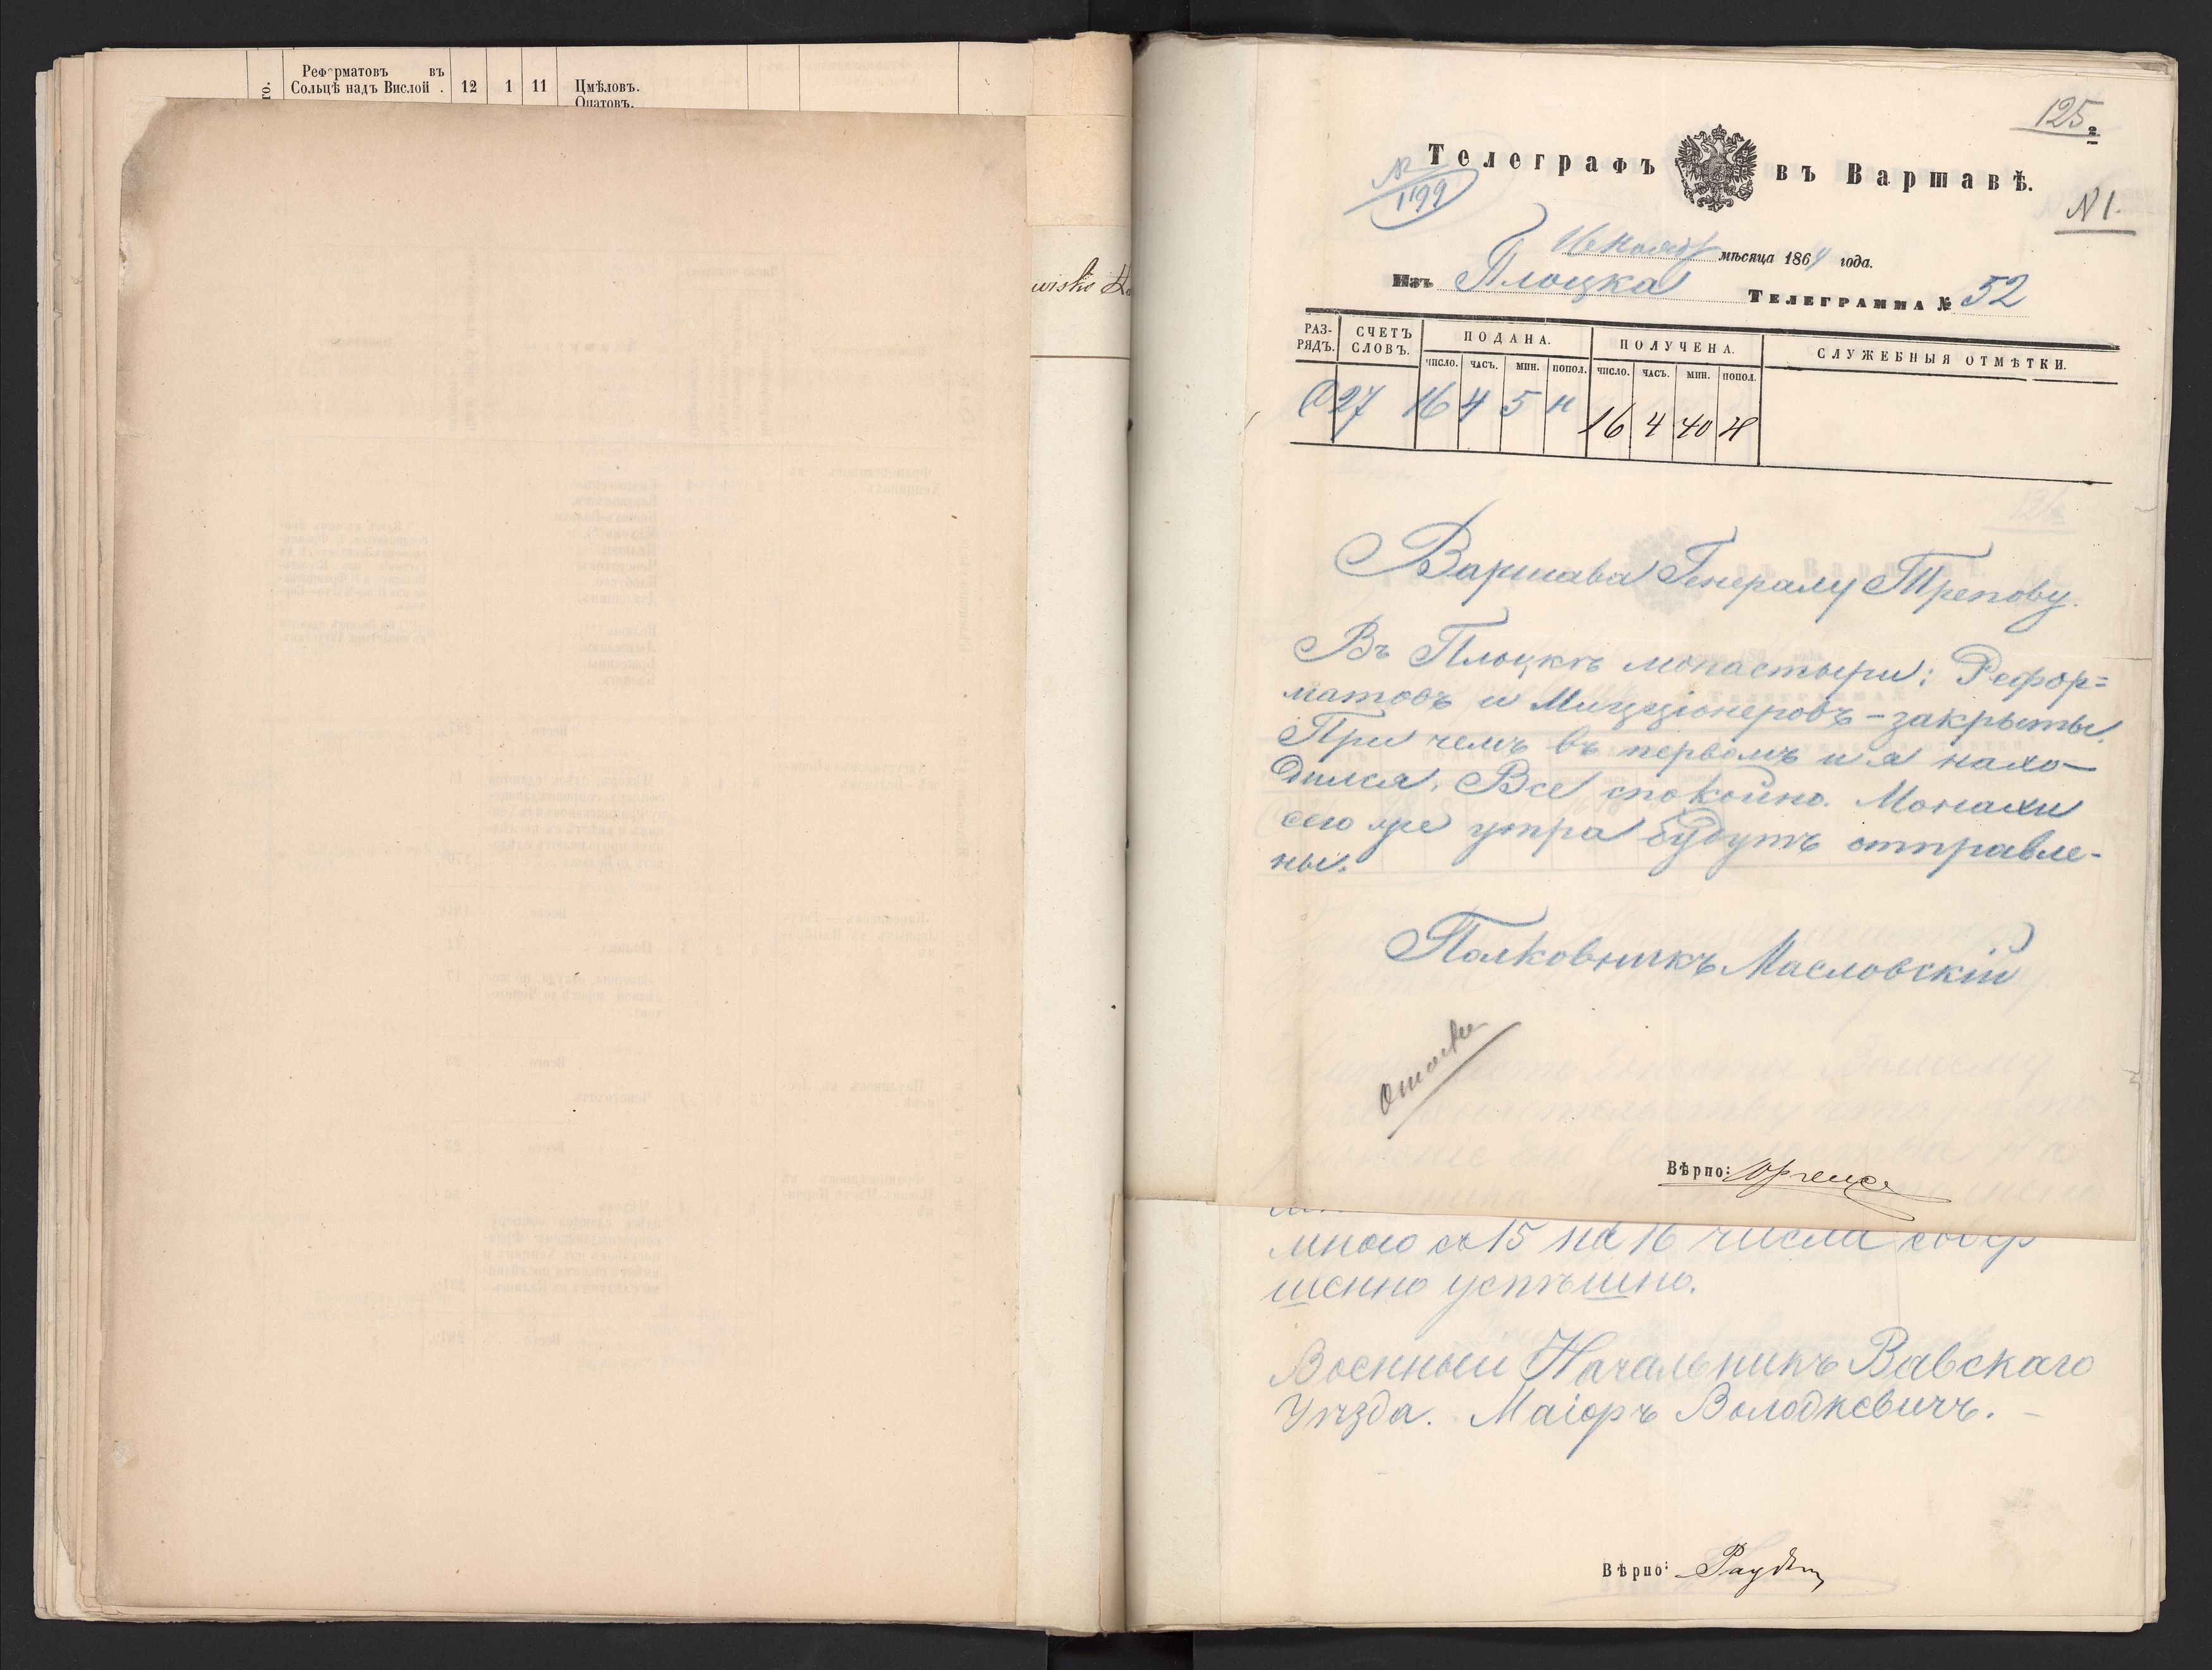 Реформатовъ въ
Сольцѣ надъ Вислой . 12 1 11 Цмѣловъ.
Опатовъ.
125
Телеграфъ въ Варшавѣ.
№ 1199
N 1.
16 Ноябр мѣсяца 1864 года.
Изъ Плоцка Телеграмма № 52
РАЗ- СЧЕТЪ ПОДАНА. ПОЛУЧЕНА. СЛУЖЕБНЫЯ ОТМѢТКИ.
РЯДЪ. СЛОВЪ. ЧИСЛО. ЧАСЪ. МИН. ПОПОЛ. ЧИСЛО. ЧАСЪ. МИН. ПОПОЛ.
27 16 4 5 н 16 4 40 н
Варшава Генералу Трепову.
Въ Плоцкѣ монастыри: Рефор=
матовъ и Миссіонеровъ - закрыты.
При чемъ въ первомъ и я нахо-
дился. Все спокойно. Монахи
сего же утра будутъ отправле-
ны.
Полковникъ Масловскій
Вѣрно:
мною съ 15 на 16 числа совер
шенно успѣшно.
Военный Начальникъ Равскаго
Уѣзда. Маіоръ Володкевичъ. -
Вѣрно: